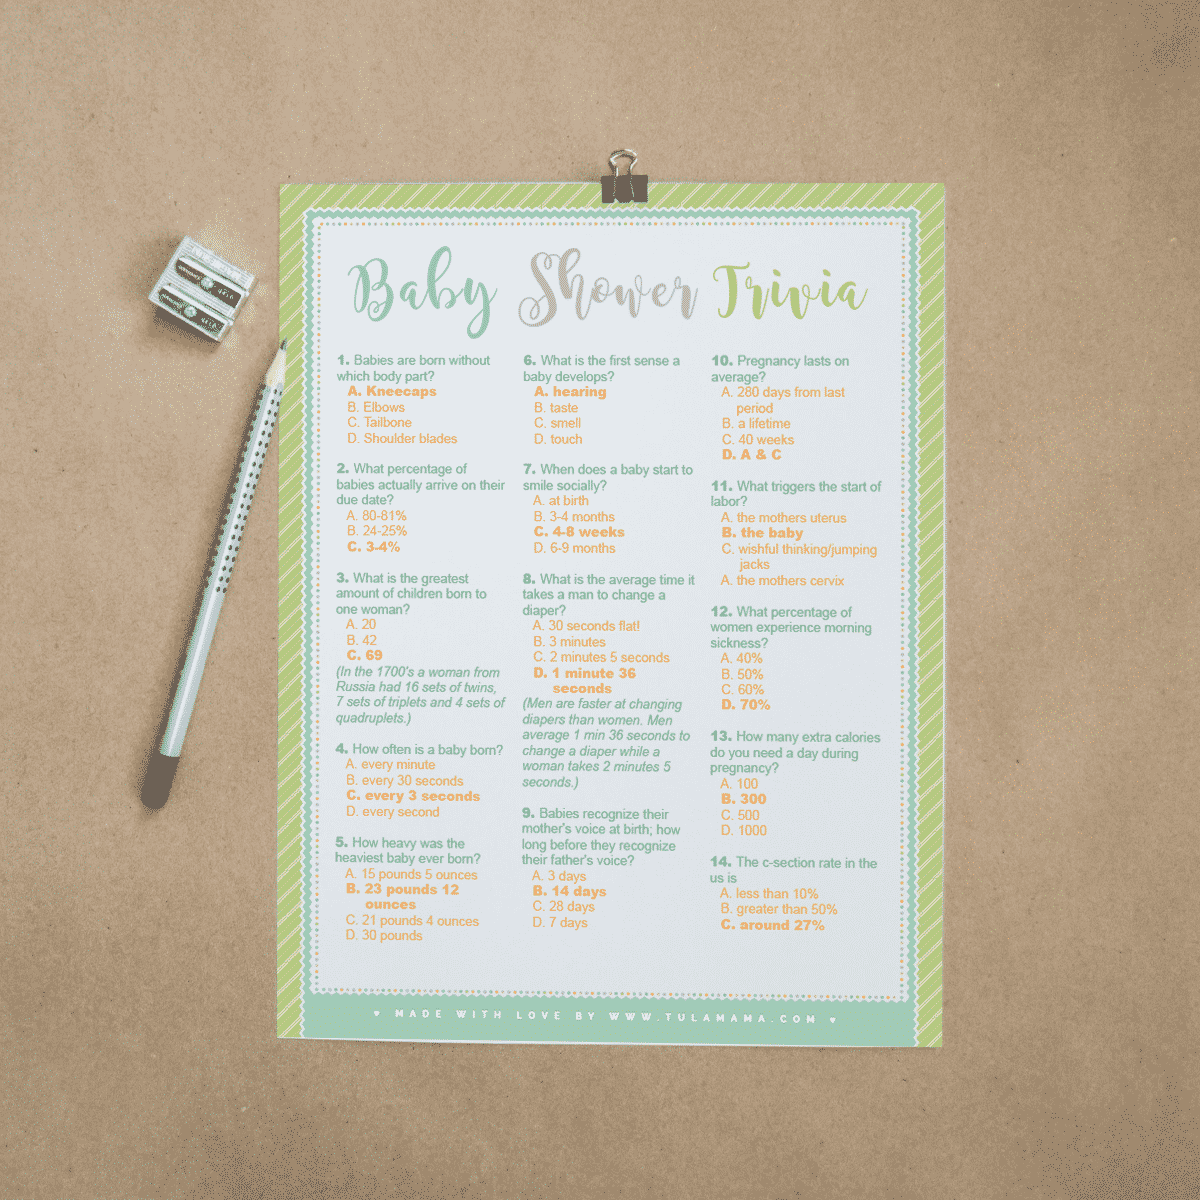 Baby Shower Trivia
1. Babies are born without
which body part?
A. Kneecaps
B. Elbows
C. Tailbone
D. Shoulder blades
2. What percentage of
babies actually arrive on their
due date?
A. 80-81%
B. 24-25%
C. 3-4%
3. What is the greatest
amount of children born to
one woman?
A. 20
B. 42
C. 69
(In the 1700's a woman from
Russia had 16 sets of twins,
7 sets of triplets and 4 sets of
quadruplets.)
4. How often is a baby born?
A. every minute
B. every 30 seconds
C. every 3 seconds
D. every second
5. How heavy was the
heaviest baby ever born?
A. 15 pounds 5 ounces
B. 23 pounds 12
ounces
C. 21 pounds 4 ounces
D. 30 pounds
6. What is the first sense a
baby develops?
A. hearing
B. taste
C. smell
D. touch
7. When does a baby start to
smile socially?
A. at birth
B. 3-4 months
C. 4-8 weeks
D. 6-9 months
8. What is the average time it
takes a man to change a
diaper?
A. 30 seconds flat!
B. 3 minutes
C. 2 minutes 5 seconds
D. 1 minute 36
seconds
(Men are faster at changing
diapers than women. Men
average 1 min 36 seconds to
change a diaper while a
woman takes 2 minutes 5
seconds.)
9. Babies recognize their
mother's voice at birth; how
long before they recognize
their father's voice?
A. 3 days
B. 14 days
C. 28 days
D. 7 days
10. Pregnancy lasts on
average?
A. 280 days from last
period
B. a lifetime
C. 40 weeks
D. A & C
11. What triggers the start of
labor?
A. the mothers uterus
B. the baby
C. wishful thinking/jumping
jacks
A. the mothers cervix
12. What percentage of
women experience morning
sickness?
A. 40%
B. 50%
C. 60%
D. 70%
13. How many extra calories
do you need a day during
pregnancy?
A. 100
B. 300
C. 500
D. 1000
14. The c-section rate in the
us is
A. less than 10%
B. greater than 50%
C. around 27%
♥ MADE WITH LOVE BY WWW.TULAMAMA.COM ♥